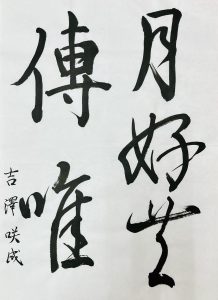 月好共
傳唯
吉澤咲成